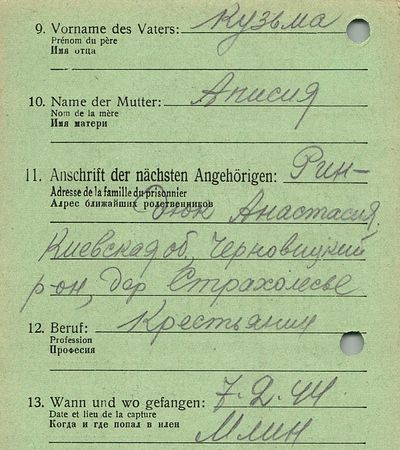 9. Vorname des Vaters: Кузьма
Prénom du père
Имя отца
10. Name der Mutter: Анисия
Nom de la mère
Имя матери
11. Anschrift der nächsten Angehörigen: Рин-
Adresse de la famille du prisonnier
Адрес ближайших родственников
дюк Анастасия
Киевская об, Черновицкий
р-он, дер Страхолесье
12. Beruf: Крестьянин
Profession
Професия
13. Wann und wo gefangen: 7.2.44
Date et lieu de la capture
Когда и где попал в плен
Млин